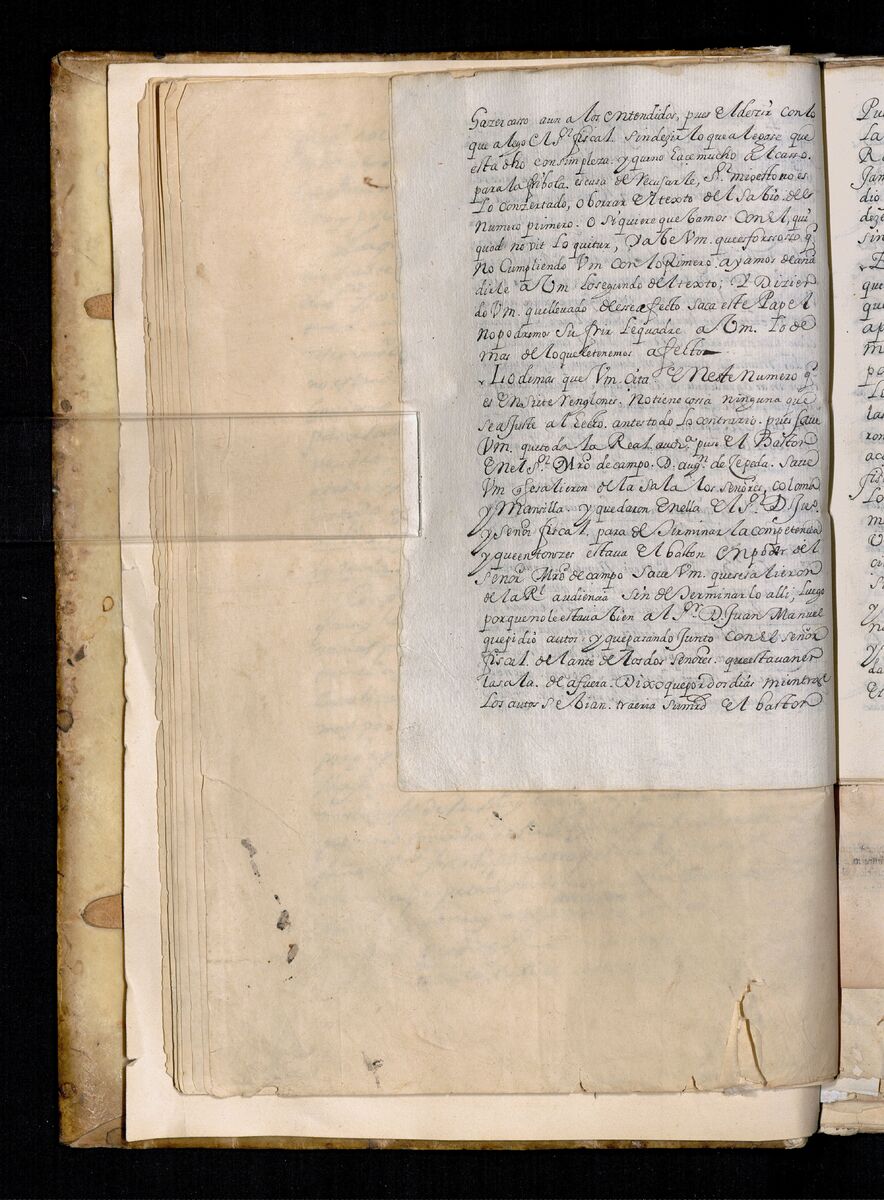 Hazer caso aun a los entendidos, pues el dezir con lo
que alego el Sr. fiscal. sin dezir lo que alegase que
está dho con simpleza. y que no hace mucho al caso.
para la fribola escusa de recusarle, Sr. mio esto no es
lo conzertado, o borrar el texto del sabio. deste
Numero primero. o si quiere que bamos con el, qui
quod no vit loquitur, sabe Vm. que es forsoso q
No Cumpliendo Vm con lo primero. ayamos de aña
dirle a Vm lo segundo del texto; Y Dizien
do Vm. que lleuado de ese afecto saca este Papel
no podremos sufrir le quadre a Vm. lo de
mas de lo que le tenemos afecto
Lo demas que Vm. cita En este Numero q
es En siete Renglones. No tiene cossa ninguna que
se ajuste al hecho. antes todo lo contrario. pues saue
Vm. que toda la Real audia. puso El Baston
En el Sr. Mro de campo. D. augn. de Zepeda. Saue
Vm q se salieron de la sala los señores, coloma
y Mansilla. y quedaron En ella El Sr. D. Jua.
y Señor fiscal, para determinar la competencia
y que entonzes estaua El baston En poder del
Señor Mro de campo Saue Vm. que se salieron
de la Rl audiencia sin determinarlo alli; Luego
porque no le estaua bien al Sr. D. Juan Manuel
que pidió autos. y que parando Junto con El señor
fiscal. delante de los dos Señores. que estauan en
la sala. de afuera. Dixo que por dos dias mientras
Los autos se bian. traeria su mrd El baston